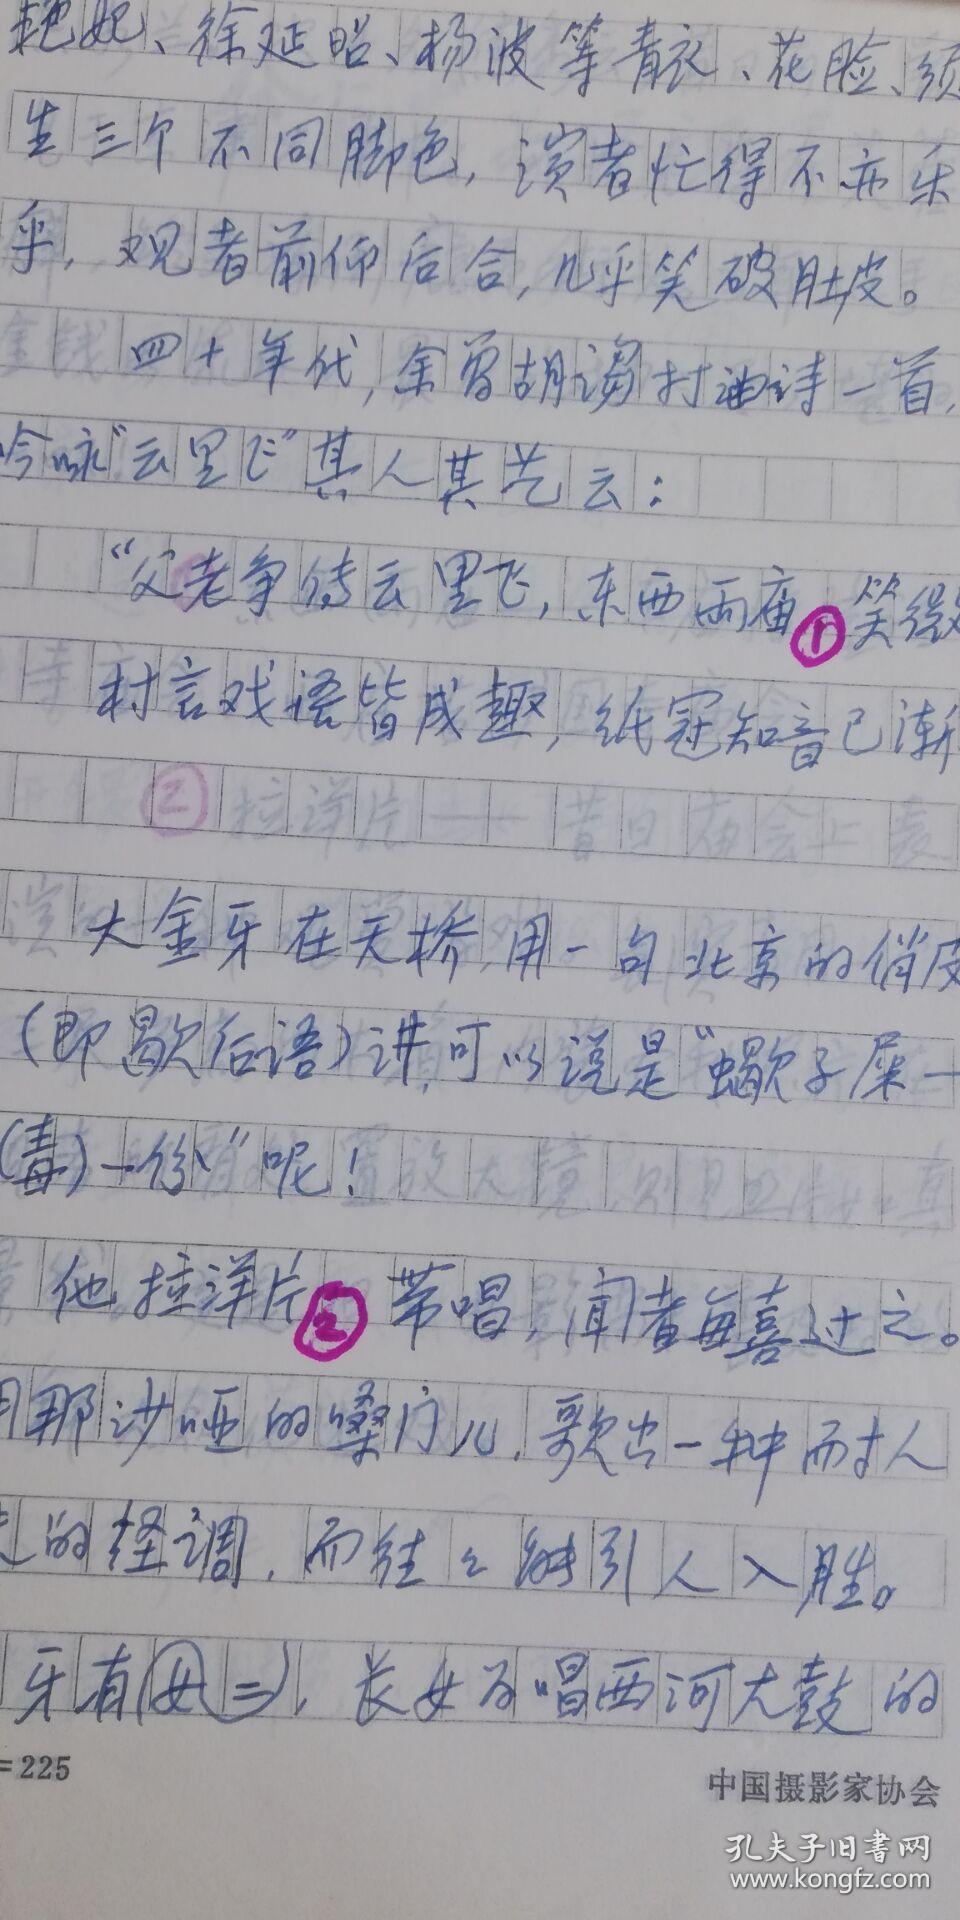 艳妃、徐延昭、杨波等青衣、花脸、须
生三个不同脚色，演者忙得不亦乐
乎，观者前仰后合，几乎笑破肚皮。
四十年代，余曾胡诌打油诗一首，
吟咏“云里飞”其人其艺云：
“父老争传云里飞，东西两庙①笑微
村言戏语皆成趣，纸冠知音已渐
大金牙在天桥，用一句北京的俏皮
（即歇后语）讲，可以说是“蝎子屎一
（毒）一份”呢！
他拉洋片②带唱，闻者每喜过之。
用那沙哑的嗓门儿，歌出一种耐人
的怪调，而往々能引人入胜。
牙有女二，长女为唱西河大鼓的
=225
中国摄影家协会
孔夫子旧书网
www.kongfz.com